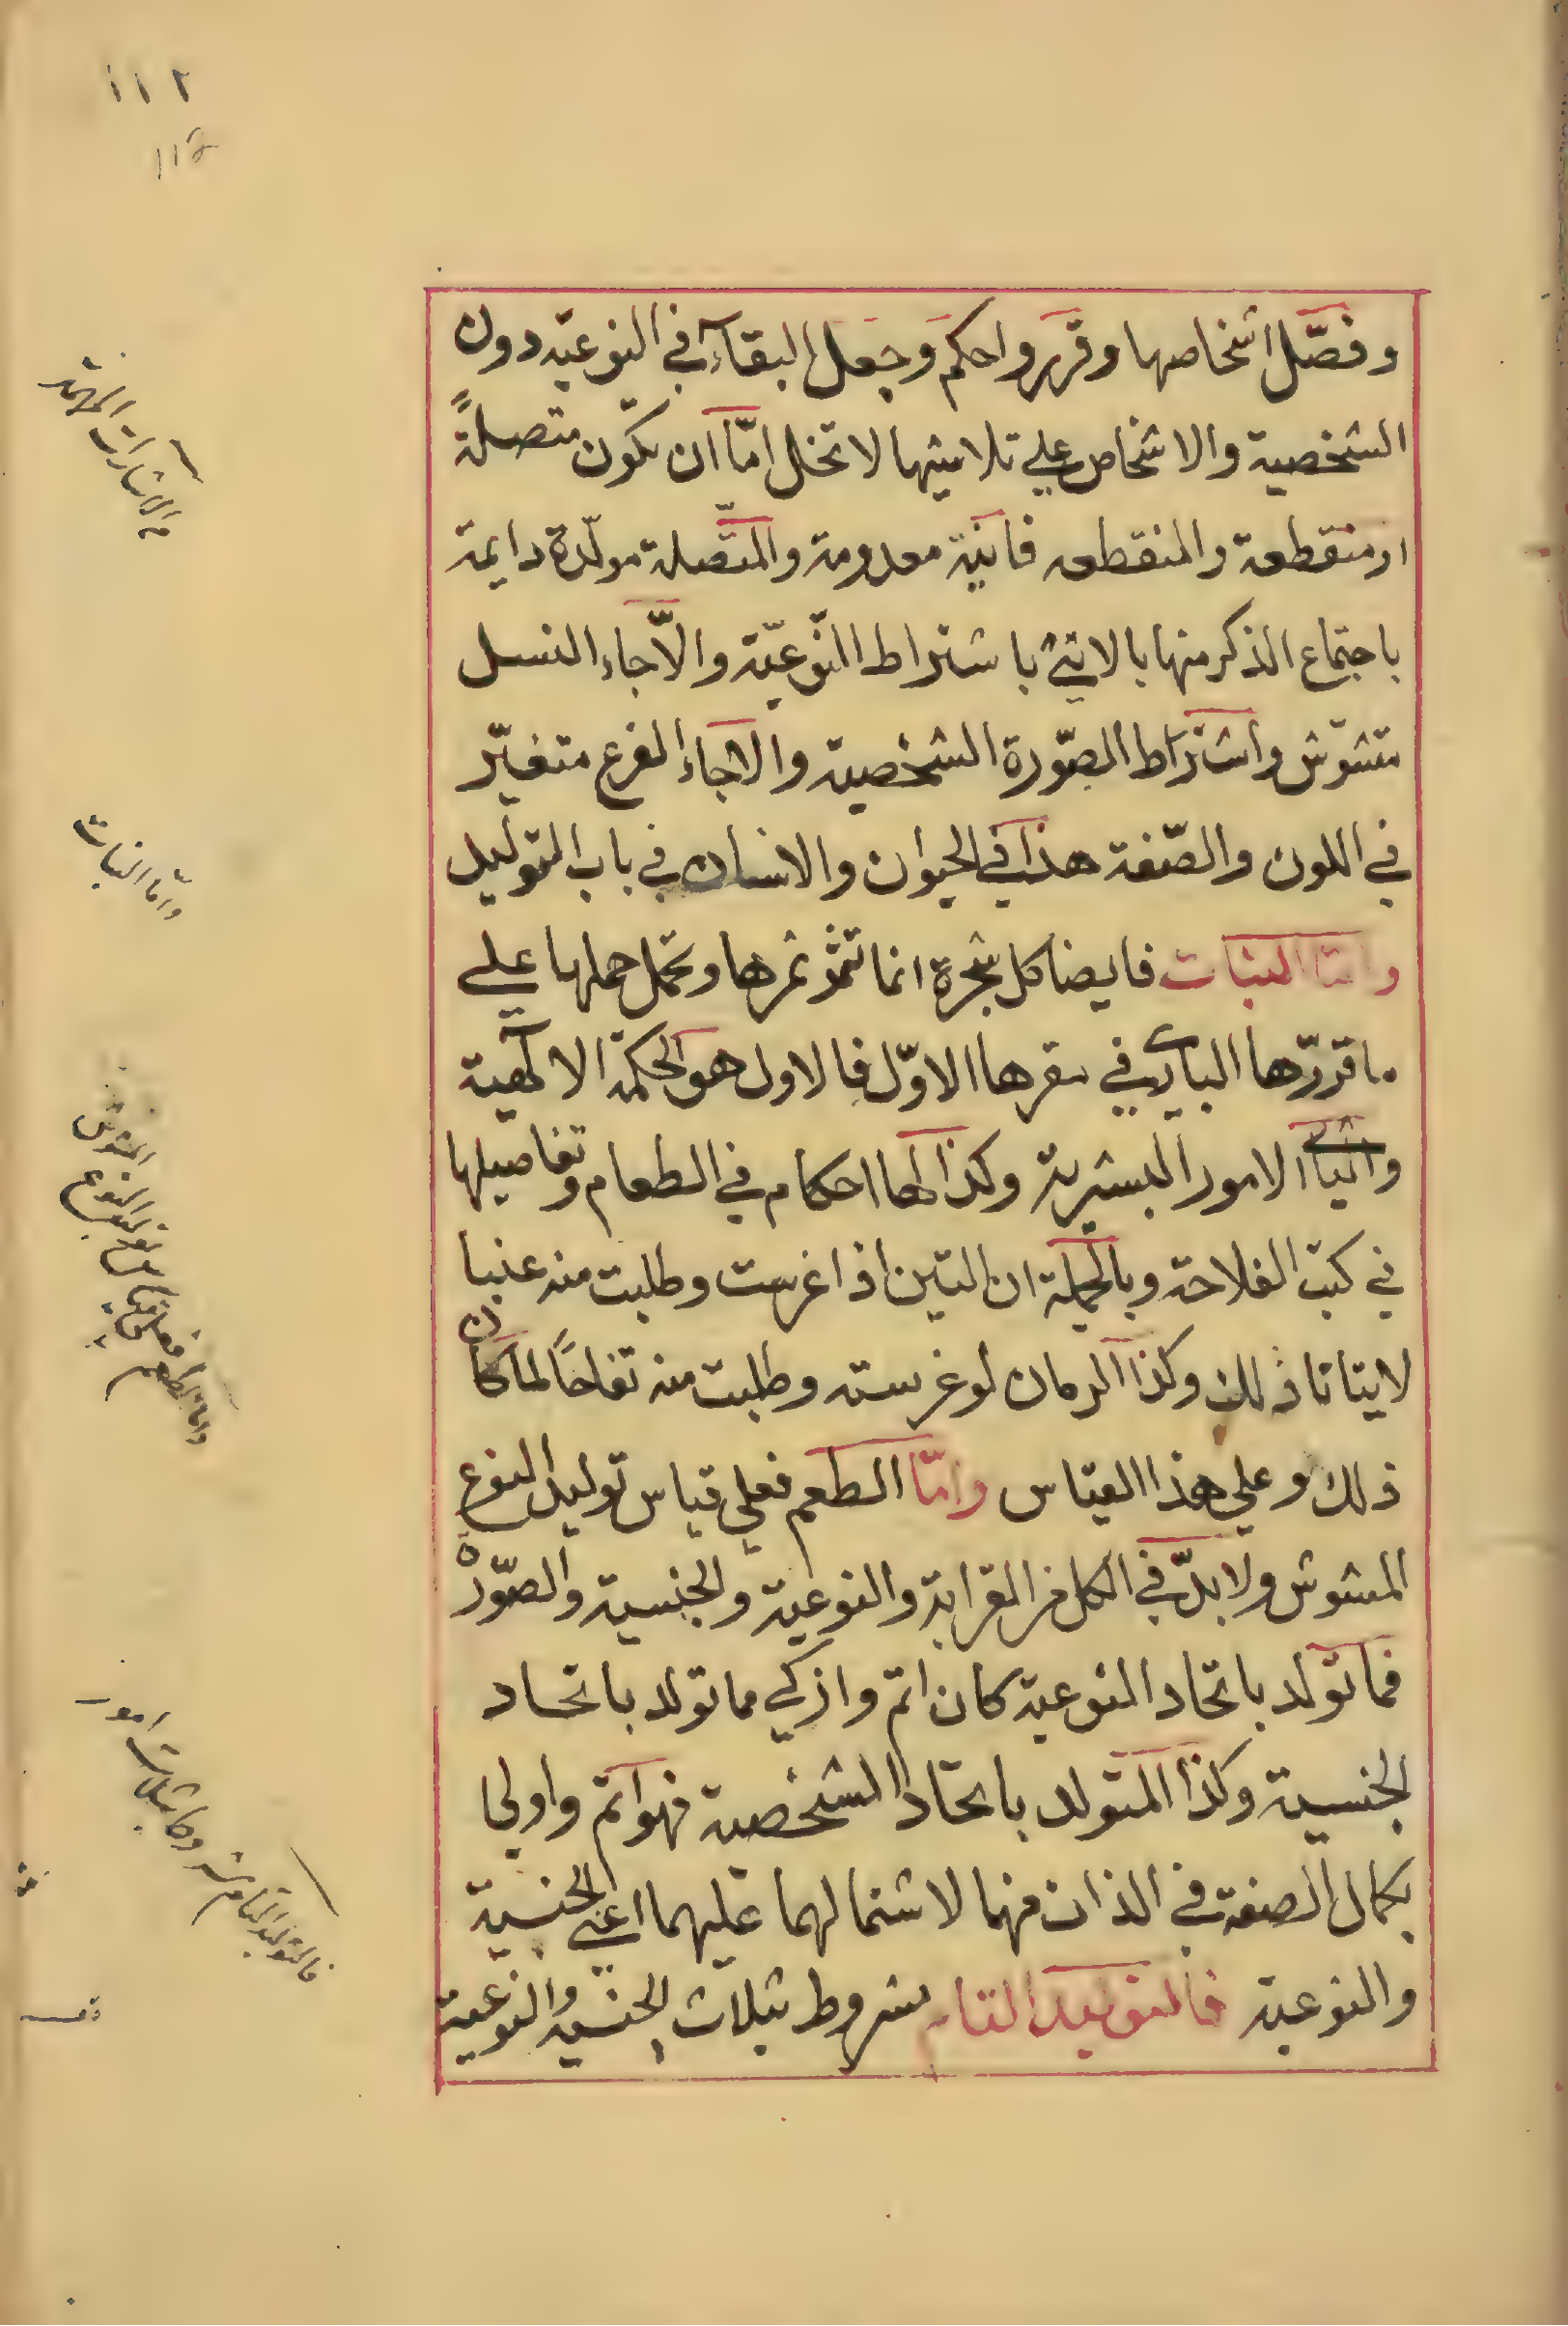 ١١٢
وفصّل اشخاصها وقرر واحكم وجعل البقآء في النوعيّة دون
الشخصية والاشخاص علي تلاشيها لا تخل امّا ان تكون متصلةً
او منقطعة والمنقطعه فانية معدومة والمتّصلة مولّدة دايمة
باجتماع الذكر منها بالانثي باشتراط النّوعيّة والّا جاء النسل
متشوّش واشتراط الصّورة الشخصية والا جاء الفرع متغيّر
في اللون والصّفة هذا في الحيوان والانسان في باب التوليد
وامّا النبات فايضا كل شجرة انما تثمر ثمرها وتحمل حملها علي
ما قدرّها الباري في سفرها الاوّل فالاول هو الحكمة الالٓهية
والثاني الامور البشرية وكذا لها احكام في الطعام وتفاصيلها
في كتب الفلاحة وبالجملة ان التين اذا غرست وطلبت منه عنبا
لا يتاتا ذلك وكذا الرمان لو غرسته وطلبت منه تفاحاً لما كان
ذلك وعلي هذا القياس وامّا الطعم فعلي قياس توليد النوع
المشوش ولا بدّ في الكل من القرابة والنوعية والجنسية والصّورة
فما تولد باتحاد النوعية كان اتم وازكي مما تولد باتحاد
الجنسية وكذا المتولد باتحاد الشخصية فهو اتم واولي
بكمال الصنعة في الذات منهما لاشتمالهما عليهما اعني الجنسية
والنوعية فالتوليد التام بشروط بثلاث الجنسية والنوعية
وامّا النبات